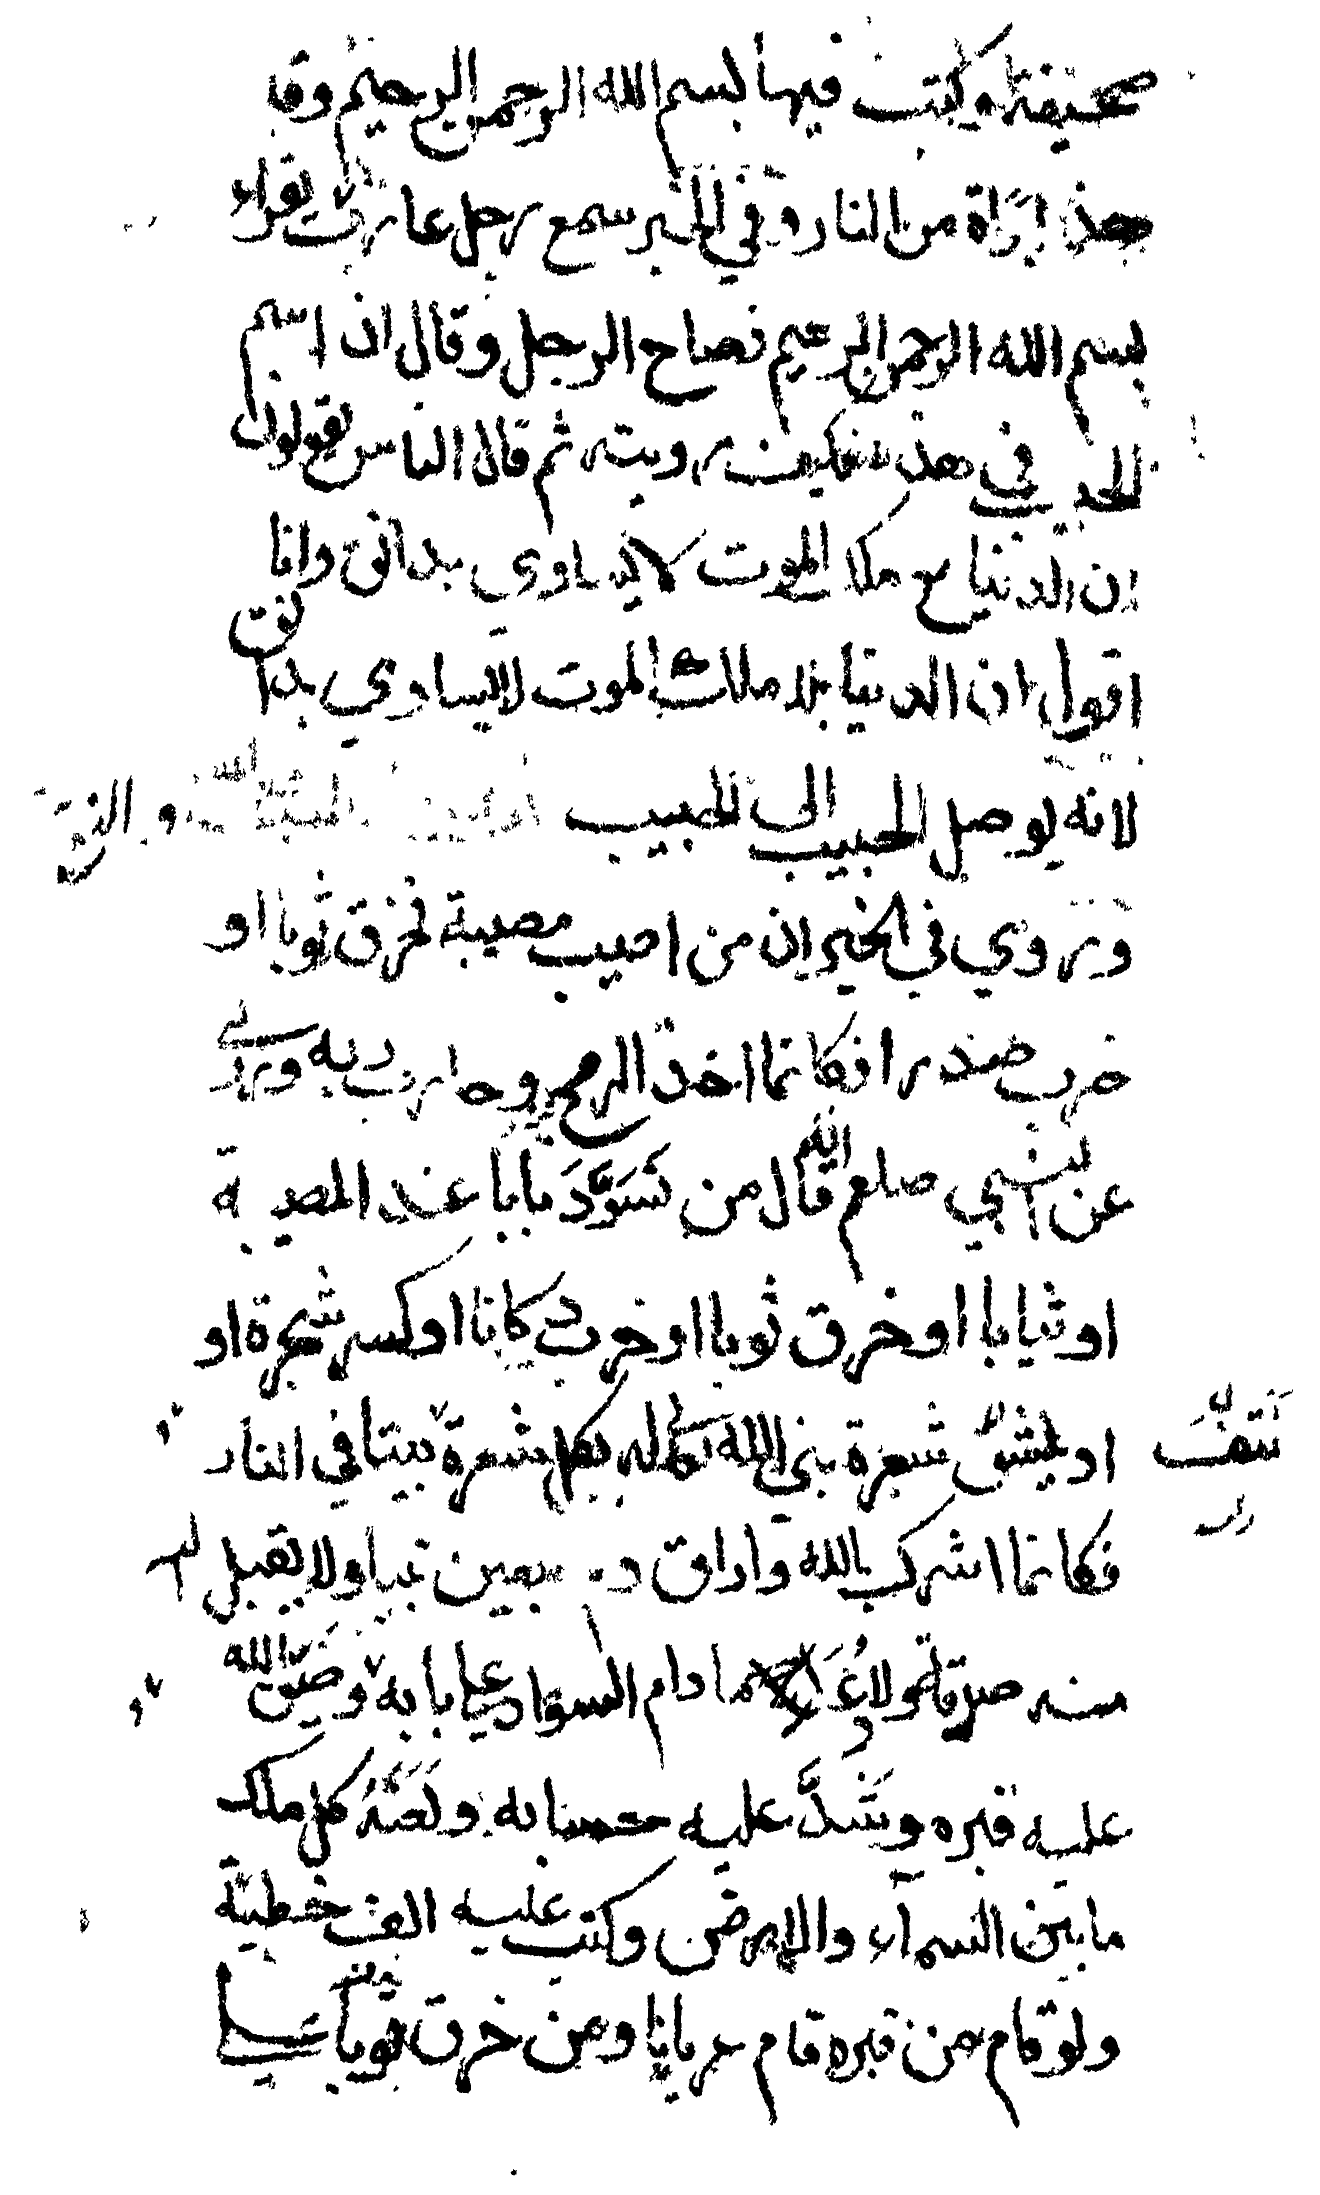 صحيفة وكتب فيها بسم الله الرحمن الرحيم وقا
هذا براة من النار وفي الخبر سمع رجل عارف يقراء
بسم الله الرحمن الرحيم فصاح الرجل وقال ان اسم
الحبيب في هذه فكيف رويته ثم قال الناس يقولون
ان الدنيا مع ملك الموت لا يساوي بدانق وانا
اقول ان الدنيا بلا ملك الموت لا يساوي بدانق
لانه يوصل الحبيب الى الحبيب
وروي في الخبر ان من اصيب مصيبة فخرق ثوبا او
ضرب صدرا فكانما اخذ الرمح وحارب ربه وروي
عن النبي صلعم قال من سَوَّدَ بابا عند المصيبة
او ثيابا او خرق ثوبا او خرب دكانا او كسر شجرة او
نتف شعرة بنى الله له بكل شعرة بيتا في النار
فكانما اشرك بالله واراق دم سبعين نبيا ولا يقبل الله
منه صرفا ولا عدلا ما دام السواد على بابه وضيق الله
عليه قبره وشَدَّ عليه حسابه ولعنه كل ملك
ما بين السماء والارض وكتب عليه الف خطيئة
ولو قام من قبره قام عريانا ومن خرق ثوبا على